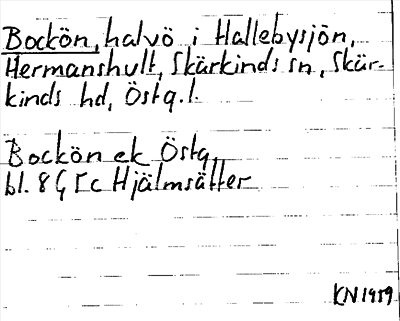 Bockön, halvö i Hallebysjön,
Hermanshult, Skärkinds sn, Skär-
kinds hd, Östg.l.
Bockön ek Östg.
bl. 8G Γc Hjälmsätter
KN 1959